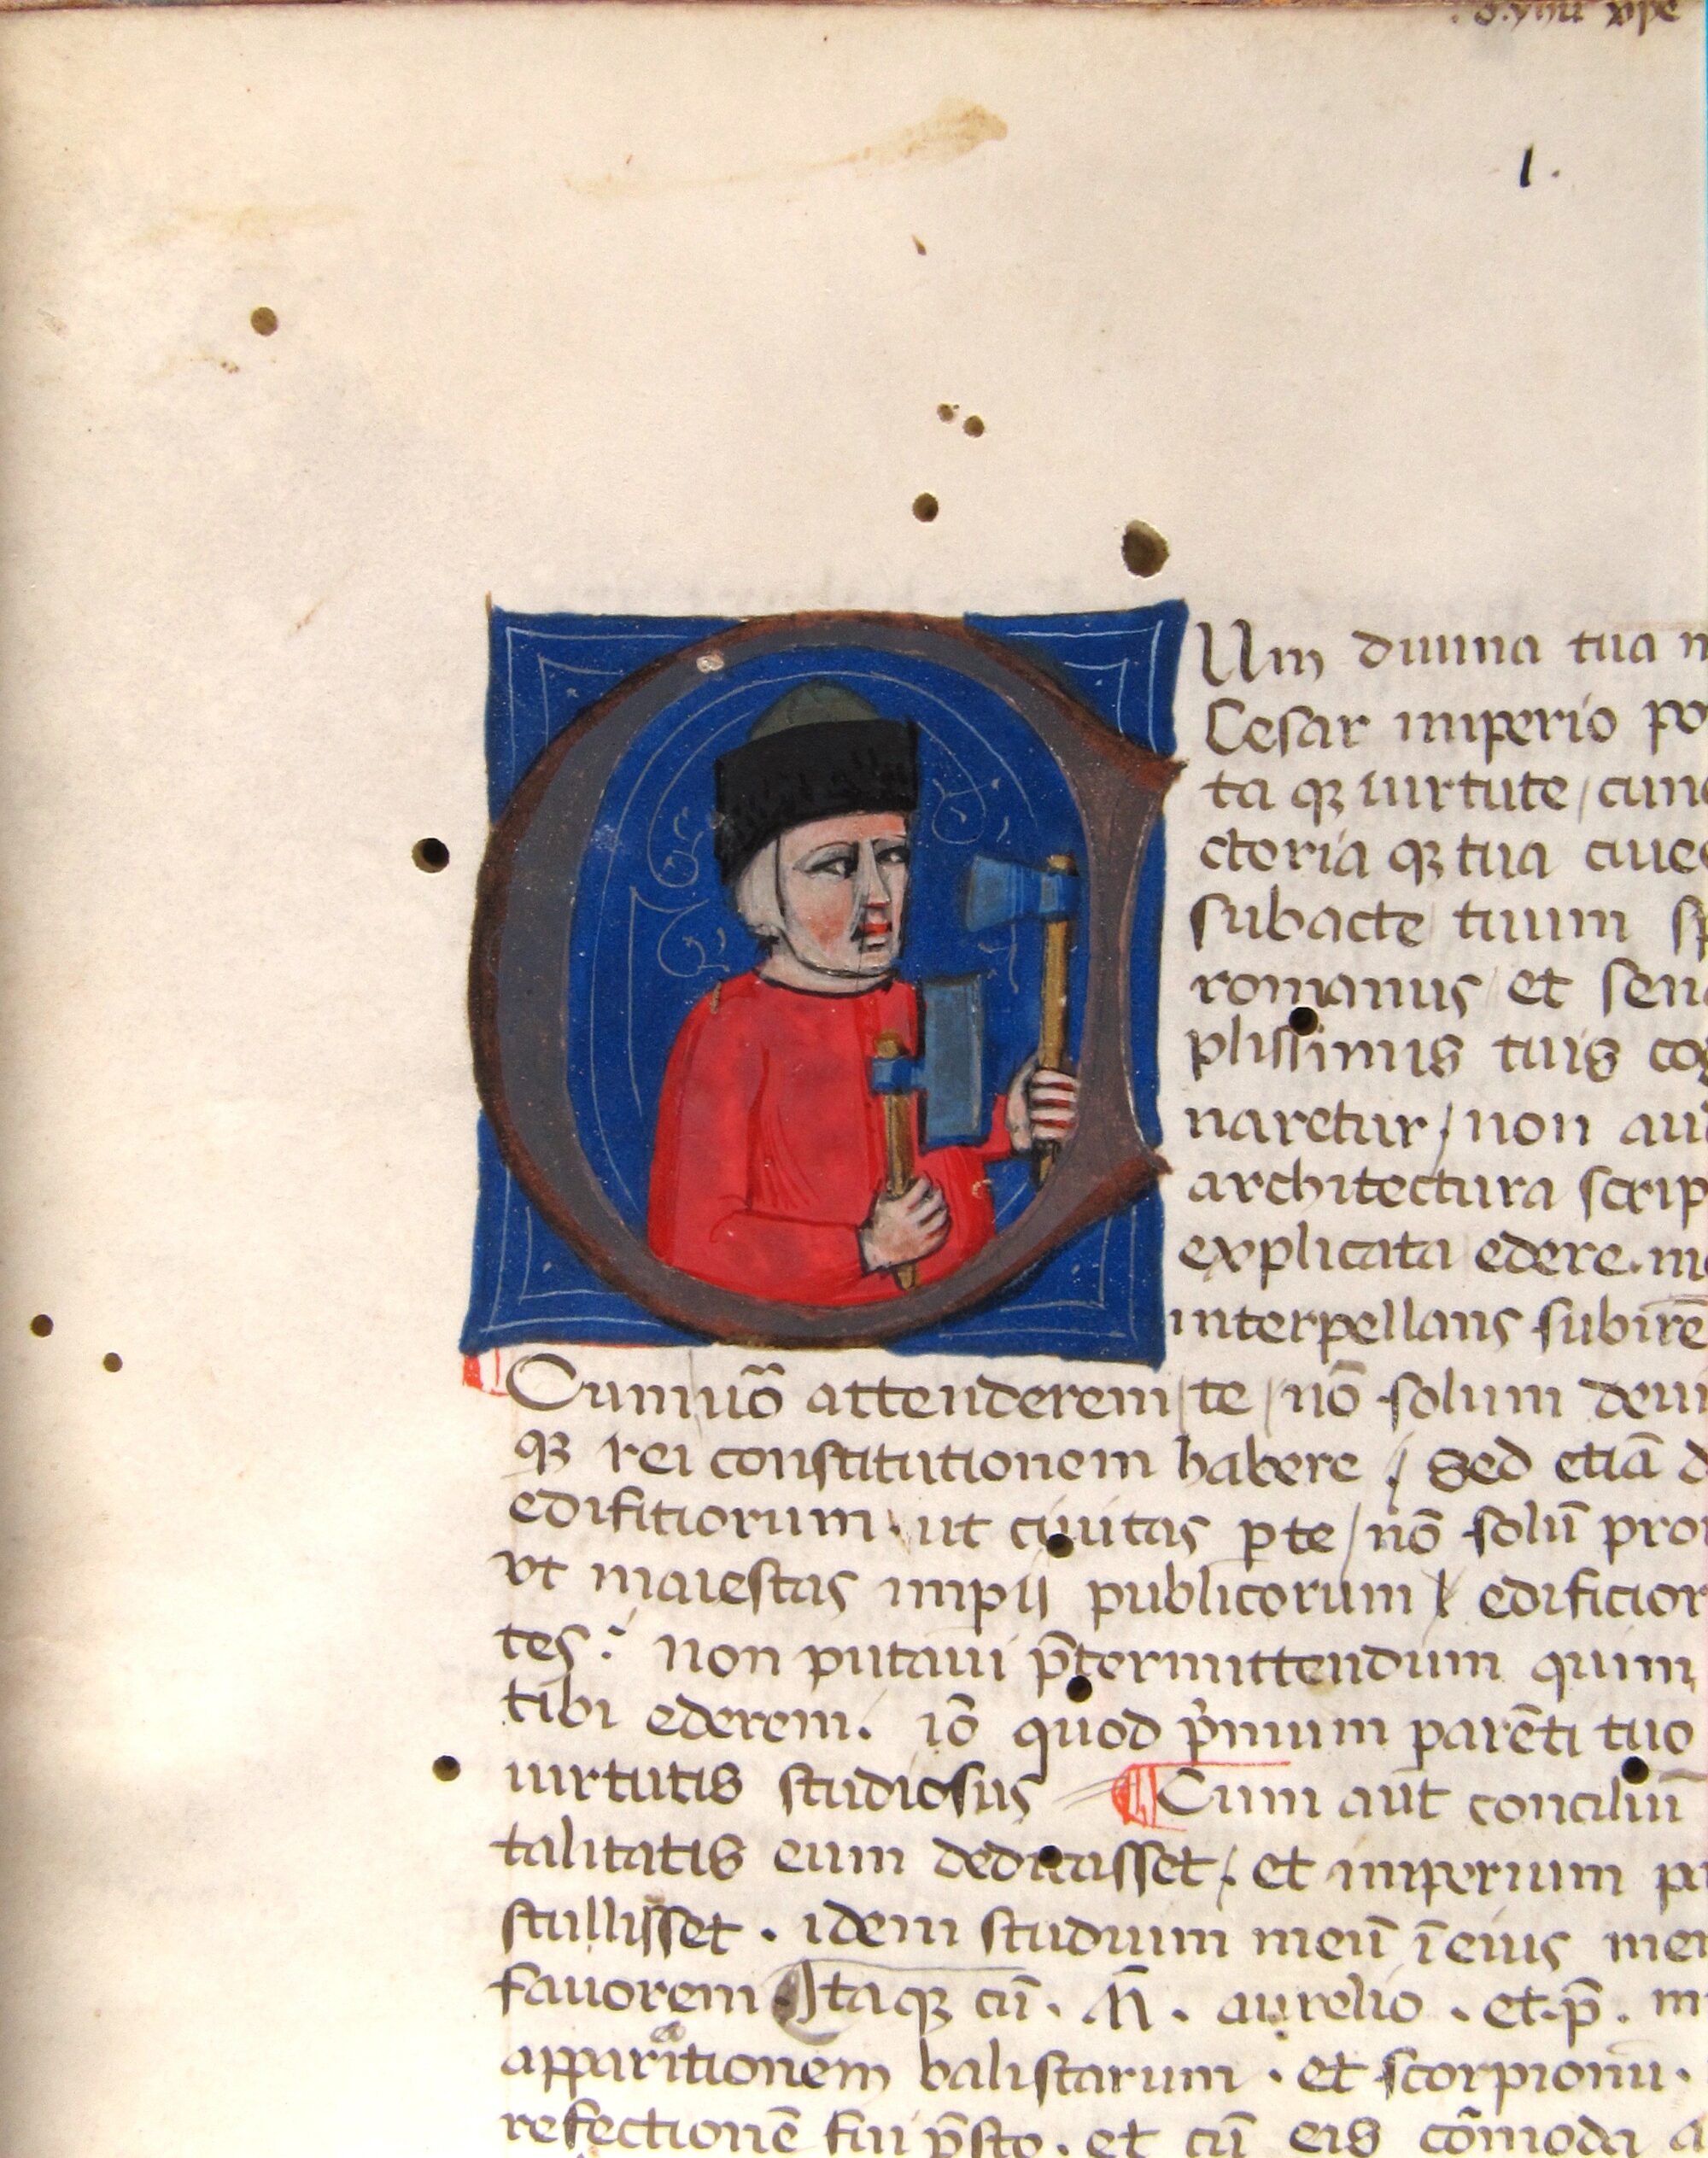 1.
Um diuina tua
Cesar imperio
ta qꝫ uirtute /
ctoria qꝫ tua
subacte tuum
romanus et
plissimus tuis
naretur / non
architectura
explicata edere.
interpellans subirē
Cum uō attenderem / te / nō solum
qꝫ rei constitutionem habere / sed etiā
edifitiorum. ut ciuitas ꝑ te / nō solū
vt maiestas impij publicorum
tes: non putaui p̄termittendum quim
tibi ederem. iō quod pͥmum parēti tuo
uirtutis studiosus ¶ Cum aut̄ conciliū
talitatis eum dedicasset / et imperium
stulisset. idem studium meū ī eius
fauorem Itaqꝫ cū. M̄. aurelio. et. p̄.
apparitionem balistarum. et scorpionū.
refectionē fui p̄sto. et cū eis cōmoda